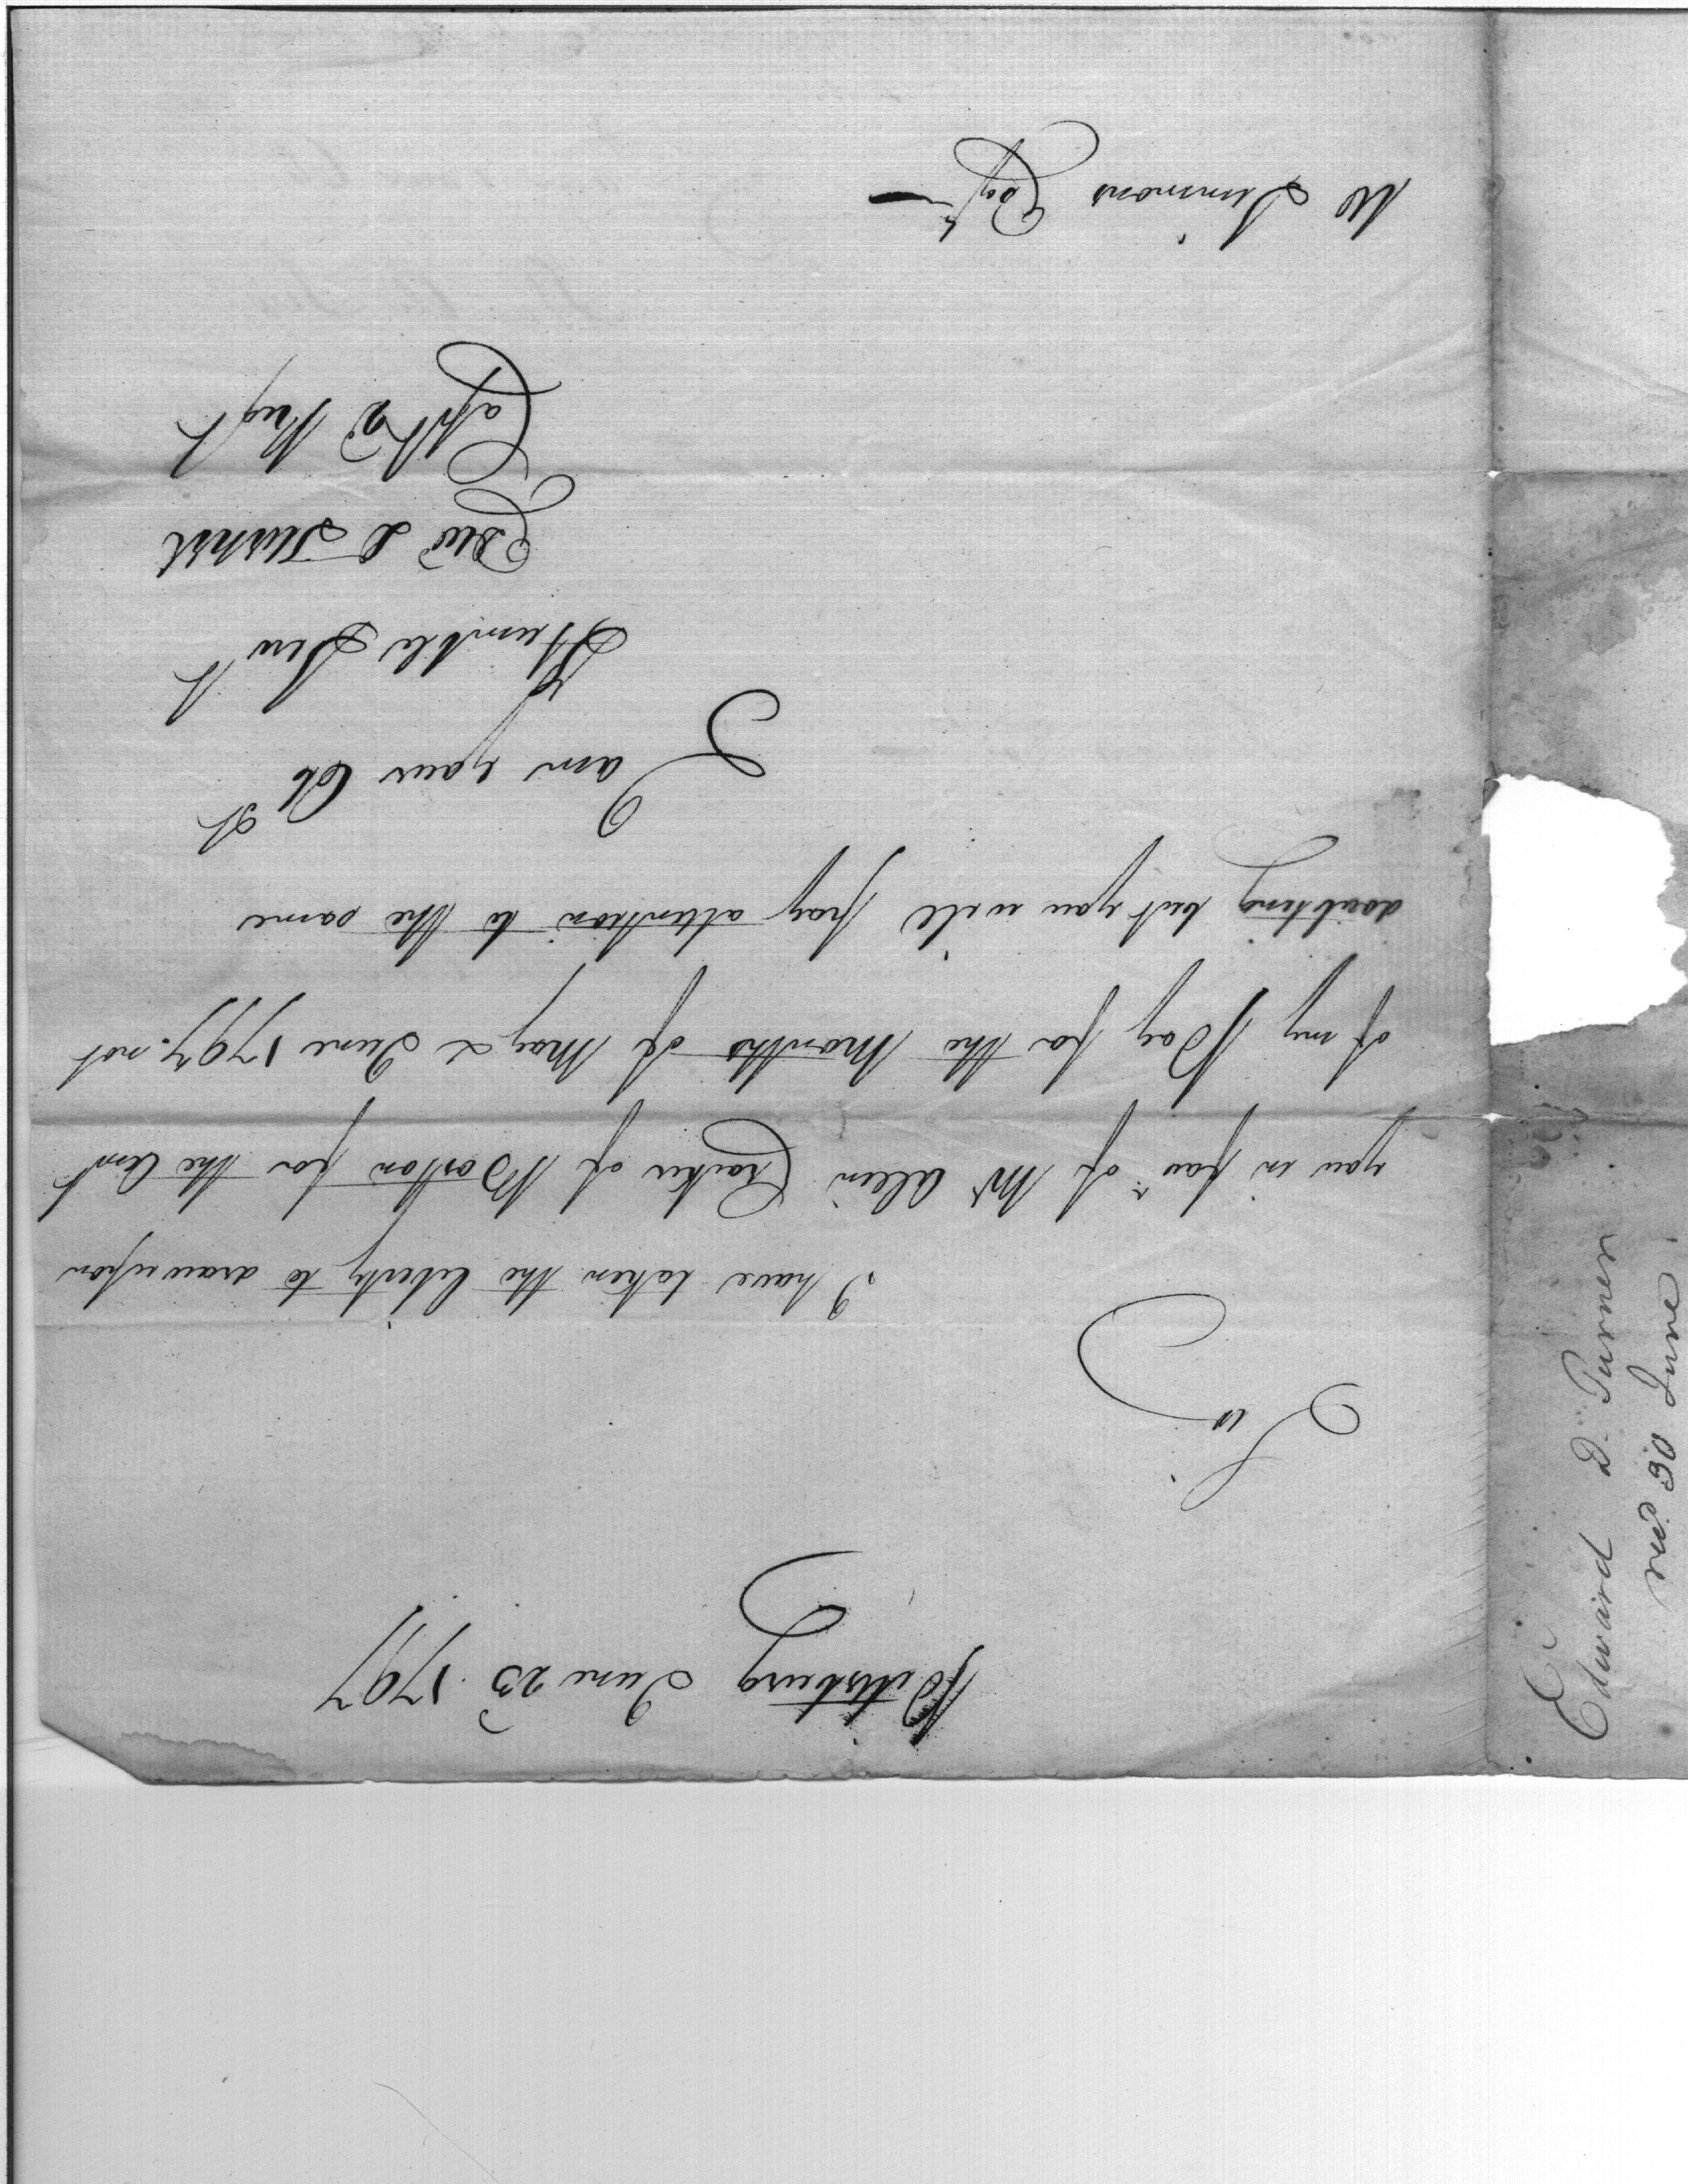 Pittsburg June 23d 1797
Sir
I have taken the liberty to draw upon
you in favr of Mr Allen Crocker of Boston for the Amt
of my Pay for the Months of May & June 1797. not
doubting but you will pay attention to the same
I am your Obt
Humble Servt
Edwd D Turner
Capt 2d Regt
W Simmons Esqr
Edward D. Turner
recd 30 June